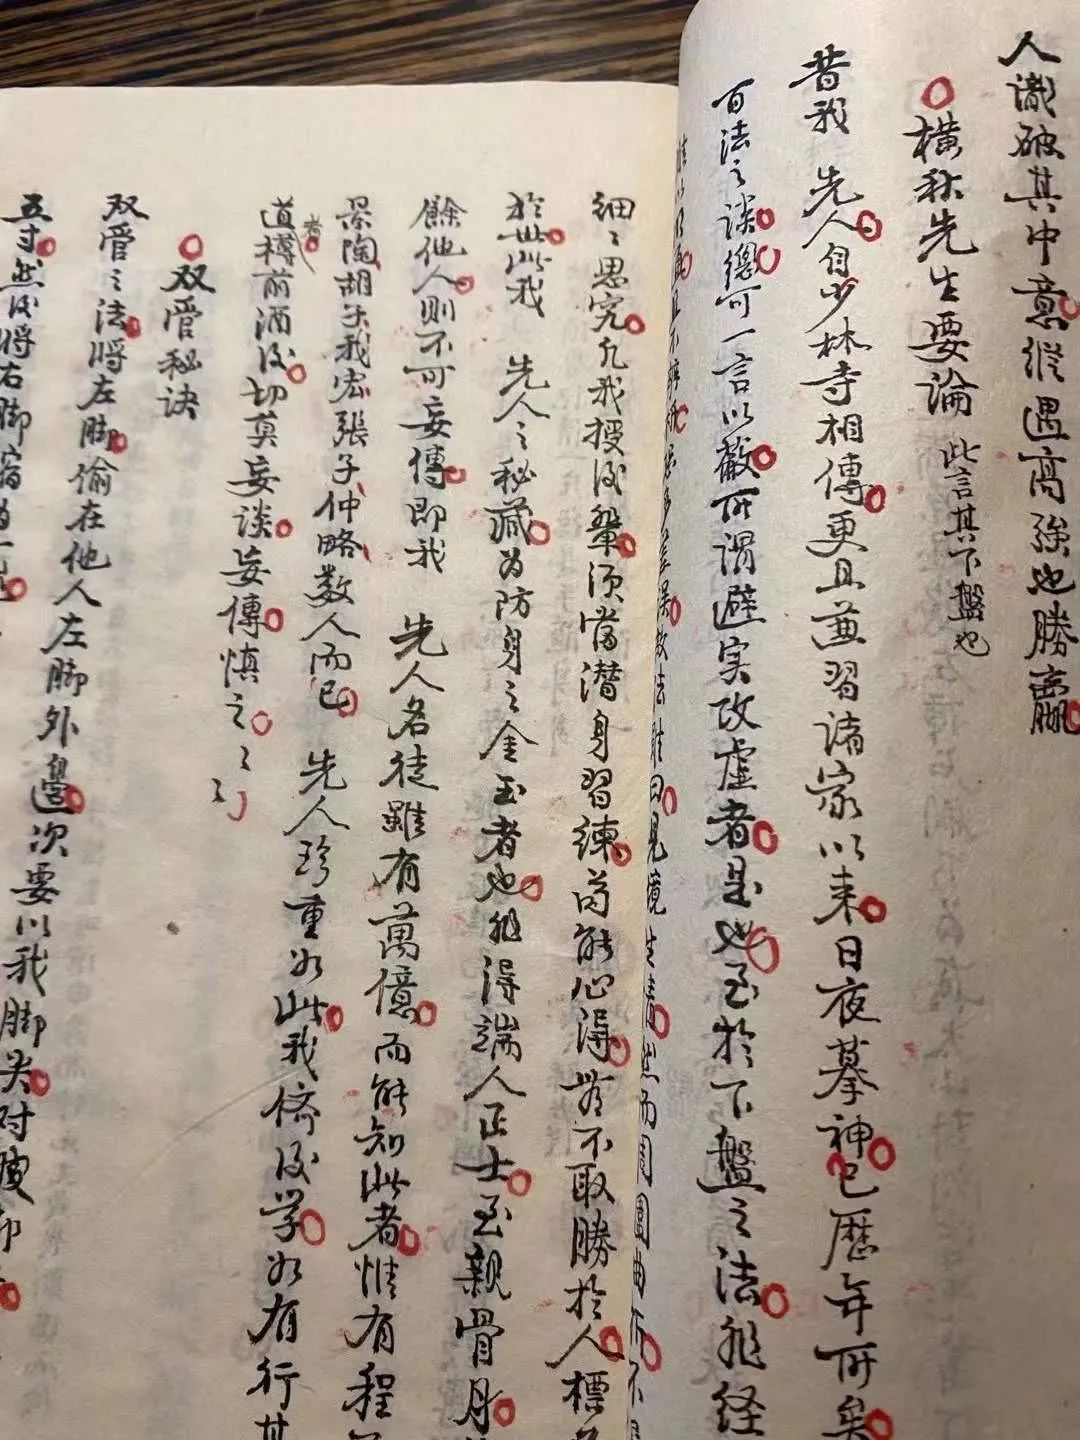 人識破其中意縱遇高強也勝贏
橫秋先生要論 此言其下盤也
昔我 先人自少林寺相傳更且兼習諸家以来日夜摹神已歷年所矣
百法之談總可一言以蔽所謂避实攻虛者是也至於下盤之法非经
見境生情然而周圓曲折不
細〻思究凡我授後輩須當潜身習練苟能心得無不取勝於人標
於世此我 先人之秘藏为防身之金玉者也非得端人正士至親骨月
餘他人則不可妄傳即我 先人名徒雖有萬億而能知此者惟有程
景陶胡于我宏張子仲略数人而已 先人珍重如此我儕後学如有行其
道者樽前酒後切莫妄談妄傳慎之〻〻
双管秘诀
双管之法将左脚偷在他人左脚外邊次要以我脚尖对
五寸然後将右脚